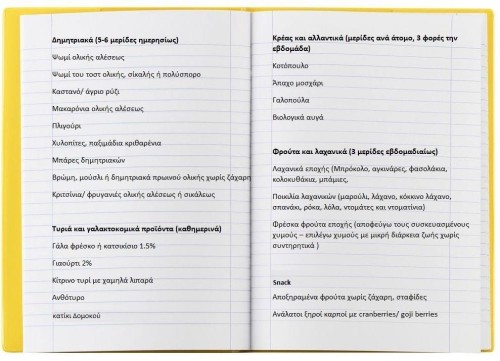 Δημητριακά (5-6 μερίδες ημερησίως)
Ψωμί ολικής αλέσεως
Ψωμί του τοστ ολικής, σίκαλής ή πολύσπορο
Καστανό/ άγριο ρύζι
Μακαρόνια ολικής αλέσεως
Πλιγούρι
Χυλοπίτες, παξιμάδια κριθαρένια
Μπάρες δημητριακών
Βρώμη, μούσλι ή δημητριακά πρωινού ολικής χωρίς ζάχαρη
Κριτσίνια/ φρυγανιές ολικής αλέσεως ή σικάλεως
Τυριά και γαλακτοκομικά προϊόντα (καθημερινά)
Γάλα φρέσκο ή κατσικίσιο 1.5%
Γιαούρτι 2%
Κίτρινο τυρί με χαμηλά λιπαρά
Ανθότυρο
κατίκι Δομοκού
Κρέας και αλλαντικά (μερίδες ανά άτομο, 3 φορές την
εβδομάδα)
Κοτόπουλο
Άπαχο μοσχάρι
Γαλοπούλα
Βιολογικά αυγά
Φρούτα και λαχανικά (3 μερίδες εβδομαδιαίως)
Λαχανικά εποχής (Μπρόκολο, αγκινάρες, φασολάκια,
κολοκυθάκια, μπάμιες,
Ποικιλία λαχανικών (μαρούλι, λάχανο, κόκκινο λάχανο,
σπανάκι, ρόκα, λόλα, ντομάτες και ντοματίνια)
Φρέσκα φρούτα εποχής (αποφεύγω τους συσκευασμένους
χυμούς – επιλέγω χυμούς με μικρή διάρκεια ζωής χωρίς
συντηρητικά )
Snack
Αποξηραμένα φρούτα χωρίς ζάχαρη, σταφίδες
Ανάλατοι ξηροί καρποί με cranberries/ goji berries